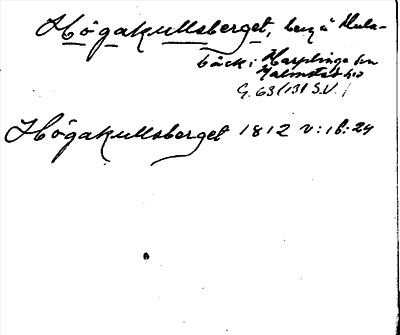 Högakullsberget, berg å Stula-
bäck i Harplinge sn
Halmstad hd
G. 63 (131 S.V.)
Högakullsberget 1812 v:16:24